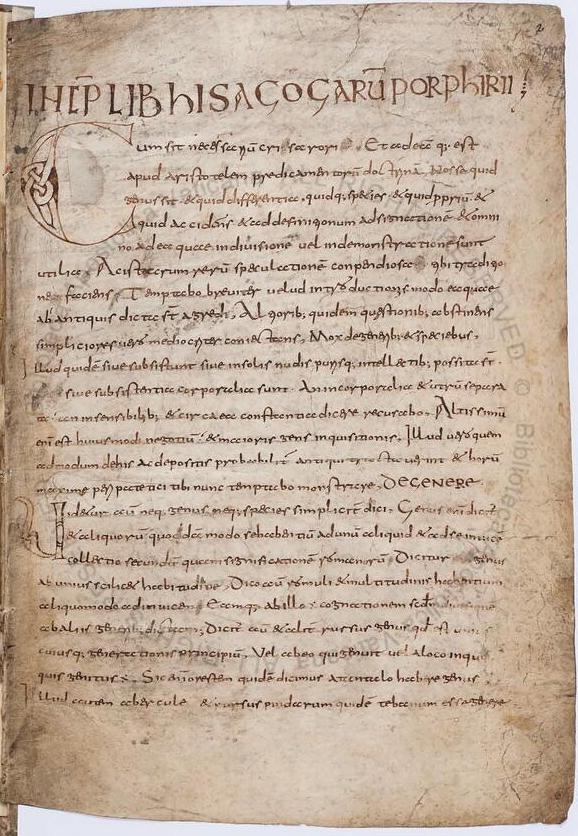 INCP LIB hISAGOGARŪ PORPhIRII
Cum sit necessariū crisarori Et ad eā q; est
apud aristotelem predicamentorū doctrinā Nosse quid
genus sit & quid differentia, quidq; species & quid ppriū &
Aquid accidens & ad definitionum adsignatione & omni
no ad ea quae in diuisione uel in demonstratione sunt
utilia Ac istarum rerū speculatione conpendiosa tibi traditio
ne faciens Temptabo breuiter uelud introductionis modo ea quae
ab antiquis dicta st agredi, Altiorib; quidem questionib; abstinens
simpliciores uero mediocriter coniectans, Mox de generib; & speciebus,
Illud quidē siue subsistunt siue in solis nudis purisq; intellectib; possita st
siue subsistentia corporalia sunt An incorporalia & utrū separa
ta an in sensibilib; & circa ea constantia dicere recusabo, Altissimū
enī est huiusmodi negotiū & maioris egens inquisitionis, Illud uero quem
admodum de his ac depositis probabilit antiqui tractauerint & horū
maxime peripatetici tibi nunc temptabo monstrare, DE GENERE.
Uidetur aūt neq; genus neq; species simplicit dici, Genus enī dicit
& aliquorū quodā modo se habentiū ad unū aliquid & ad se inuice
collectio secundū quam significationē romanorū Dicitur genus
ab unius scilicet habitudine, Dico aūt romuli & multitudinis habentium
aliquo modo ad inuicem Eamq; ab illo cognationem
ab aliis generib; Dicit aūt & aliter rursus genus qd est unius
cuiusq; generationis principiū Uel ab eo qui genuit uel a loco in quo
quis genitus Sic enī oresten quidē dicimus a tantalo habere genus
Illud autem ab ercule & rursus pindarum quidē tebanum esse genere